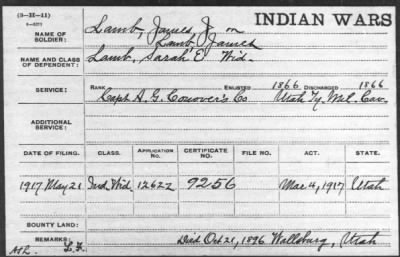 (3-II-11)
INDIAN WARS
NAME OF SOLDIER: Lamb, James, J. or
Lamb, James
NAME AND CLASS OF DEPENDENT: Lamb, Sarah E Wid.
SERVICE: RANK ENLISTED 1866 DISCHARGED 1866
Capt A. G. Conover's Co Utah Ty. Mil. Cav.
ADDITIONAL SERVICE:
DATE OF FILING. CLASS. APPLICATION No. CERTIFICATE No. FILE NO. ACT. STATE.
1917 May 21 Ind. Wid. 12622 9256 Mar 4, 1917 Utah
BOUNTY LAND:
REMARKS: Died Oct 21, 1896 Wallsburg, Utah